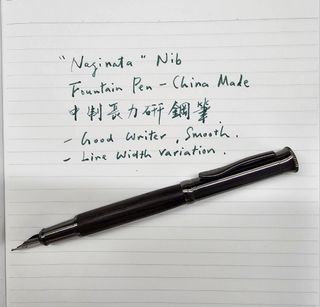 "Naginata" Nib
Fountain Pen - China Made
中制長刀研鋼筆
- Good Writer, Smooth.
- Line Width Variation.